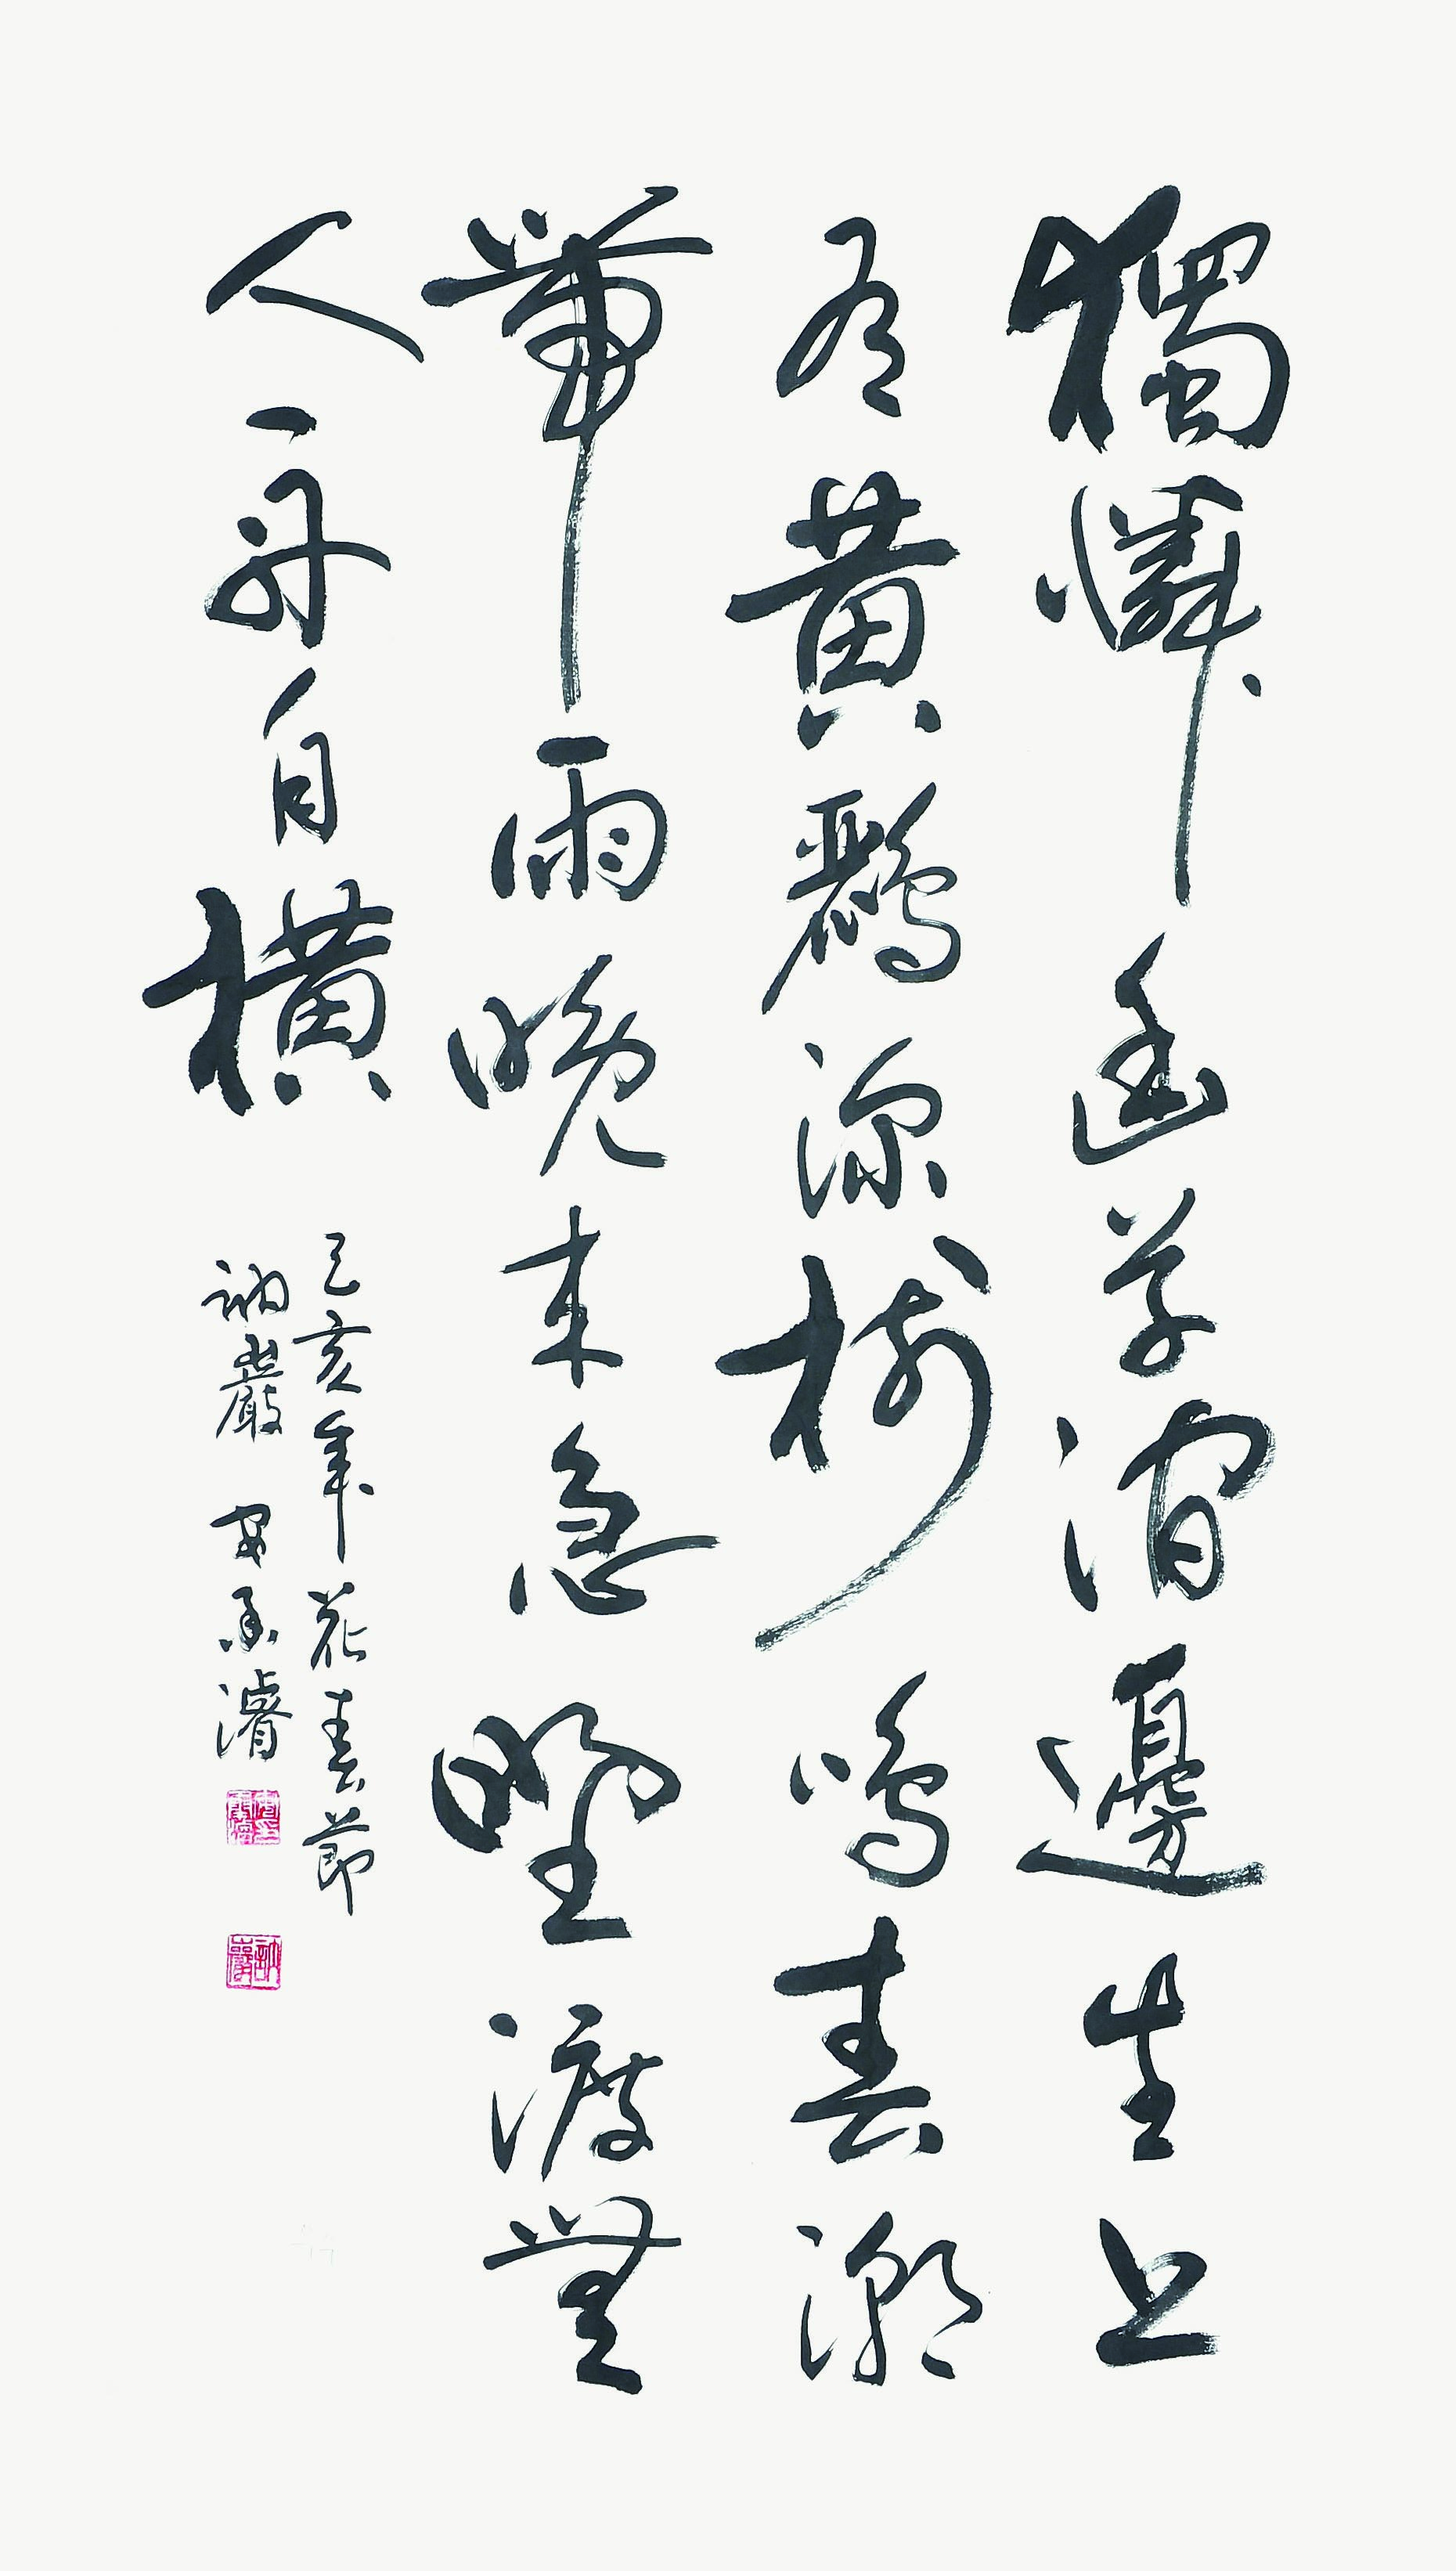 獨憐幽草澗邊生上
有黃鸝深樹鳴春潮
帶雨晚來急野渡無
人舟自橫
己亥年花春節
訥巖 安永濬
訥巖